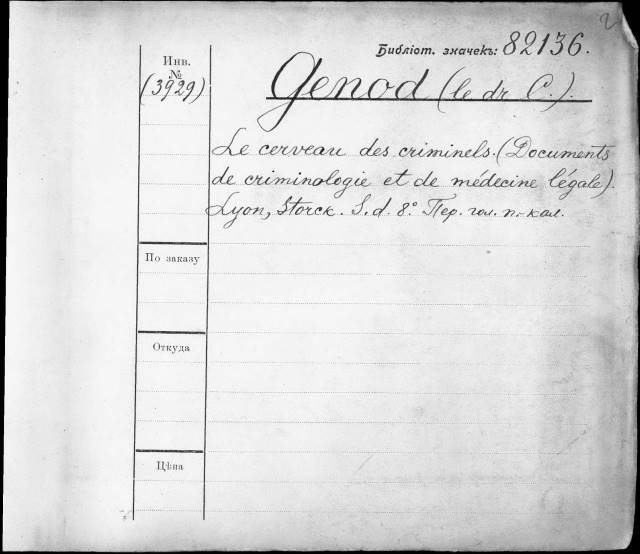 Библіот. значекъ: 82136.
Инв.
№
(3929)
Genod (le dr C.).
Le cerveau des criminels. (Documents
de criminologie et de médecine légale).
Lyon, Storck. S. d. 8º Пер. гол. п.-кал.
По заказу
Откуда
Цѣна